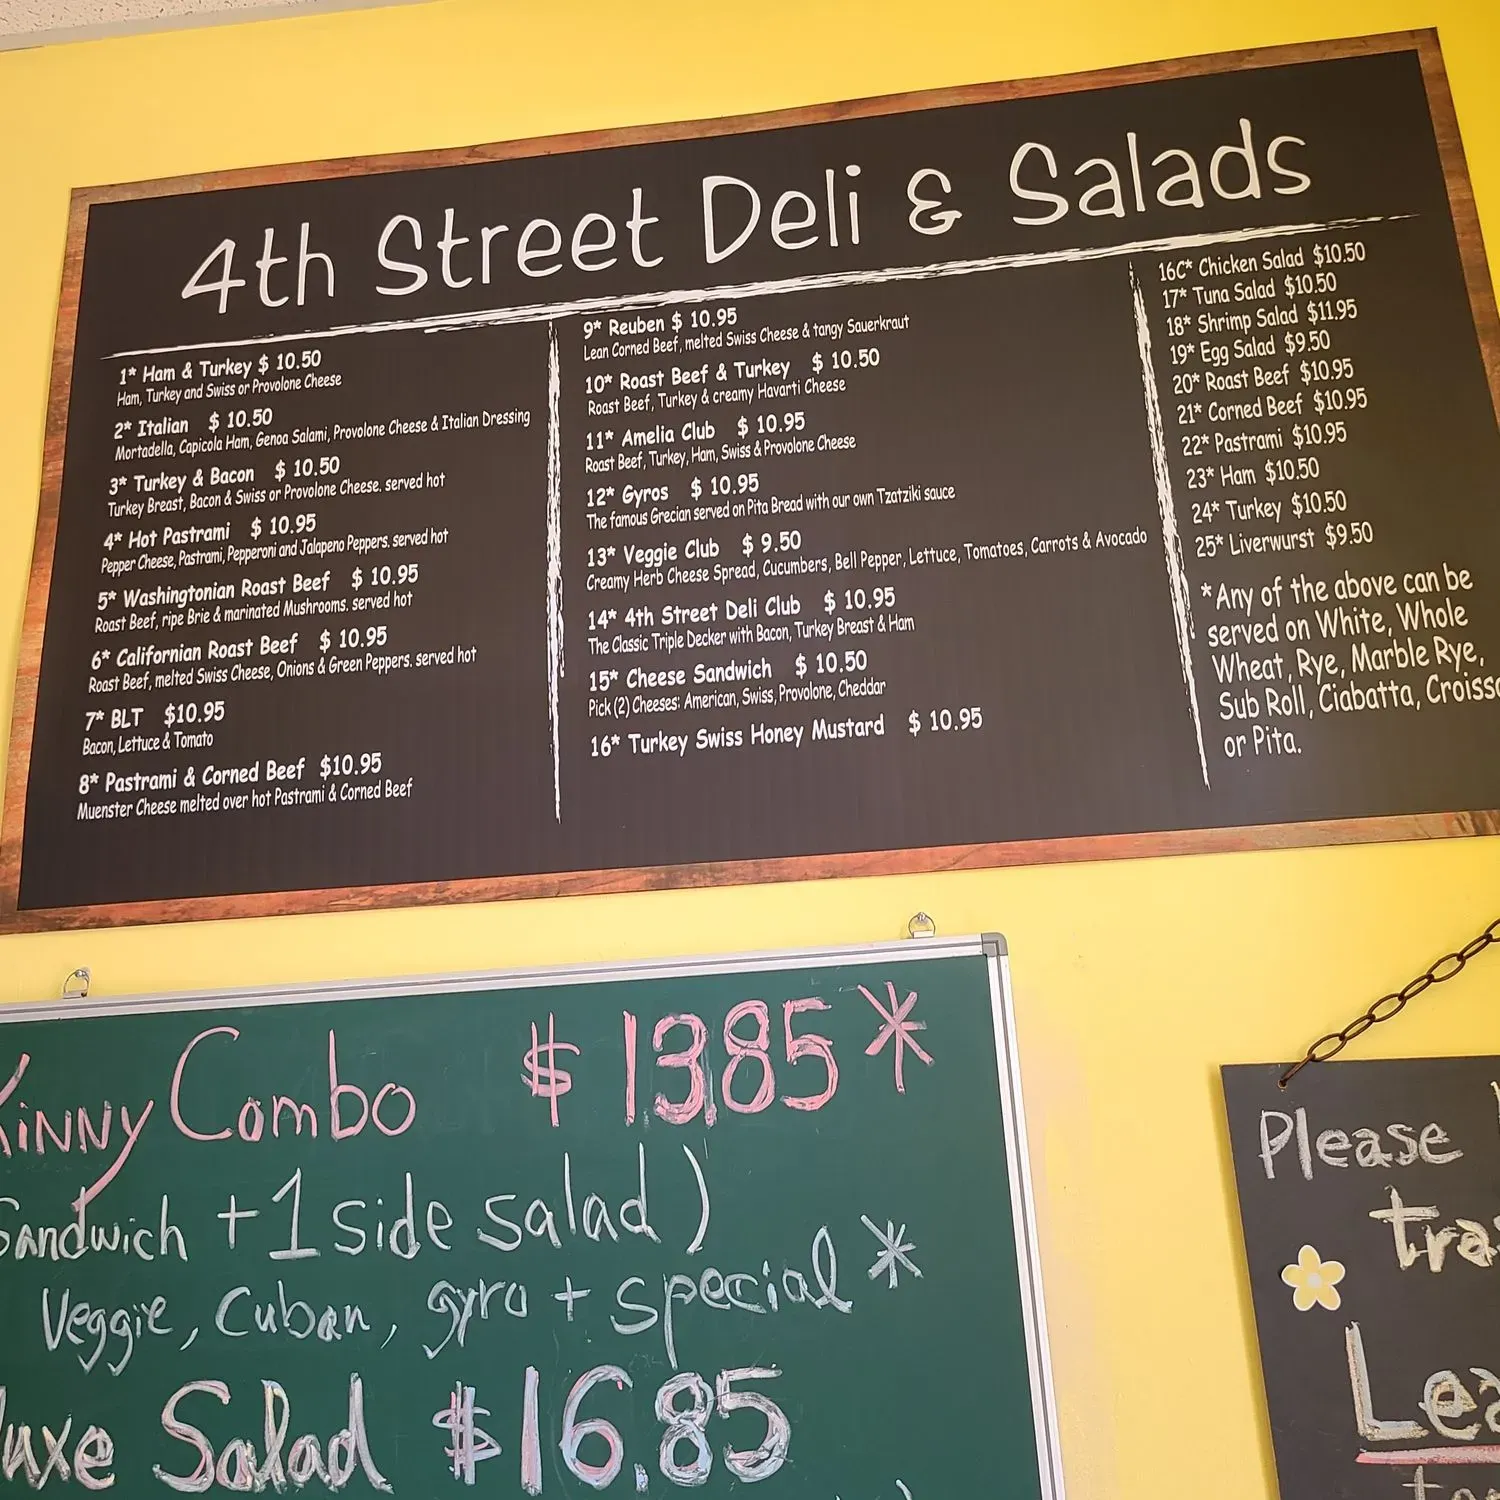 4th Street Deli & Salads
1* Ham & Turkey $ 10.50
Ham, Turkey and Swiss or Provolone Cheese
2* Italian $ 10.50
Mortadella, Capicola Ham, Genoa Salami, Provolone Cheese & Italian Dressing
3* Turkey & Bacon $ 10.50
Turkey Breast, Bacon & Swiss or Provolone Cheese. served hot
4* Hot Pastrami $ 10.95
Pepper Cheese, Pastrami, Pepperoni and Jalapeno Peppers. served hot
5* Washingtonian Roast Beef $ 10.95
Roast Beef, ripe Brie & marinated Mushrooms. served hot
6* Californian Roast Beef $ 10.95
Roast Beef, melted Swiss Cheese, Onions & Green Peppers. served hot
7* BLT $10.95
Bacon, Lettuce & Tomato
8* Pastrami & Corned Beef $10.95
Muenster Cheese melted over hot Pastrami & Corned Beef
9* Reuben $ 10.95
Lean Corned Beef, melted Swiss Cheese & tangy Sauerkraut
10* Roast Beef & Turkey $ 10.50
Roast Beef, Turkey & creamy Havarti Cheese
11* Amelia Club $ 10.95
Roast Beef, Turkey, Ham, Swiss & Provolone Cheese
12* Gyros $ 10.95
The famous Grecian served on Pita Bread with our own Tzatziki sauce
13* Veggie Club $ 9.50
Creamy Herb Cheese Spread, Cucumbers, Bell Pepper, Lettuce, Tomatoes, Carrots & Avocado
14* 4th Street Deli Club $ 10.95
The Classic Triple Decker with Bacon, Turkey Breast & Ham
15* Cheese Sandwich $ 10.50
Pick (2) Cheeses: American, Swiss, Provolone, Cheddar
16* Turkey Swiss Honey Mustard $ 10.95
16C* Chicken Salad $10.50
17* Tuna Salad $10.50
18* Shrimp Salad $11.95
19* Egg Salad $9.50
20* Roast Beef $10.95
21* Corned Beef $10.95
22* Pastrami $10.95
23* Ham $10.50
24* Turkey $10.50
25* Liverwurst $9.50
*Any of the above can be
served on White, Whole
Wheat, Rye, Marble Rye,
Sub Roll, Ciabatta, Croiss
or Pita.
kinny Combo $ 13.85*
Sandwich + 1 side salad)
Veggie, Cuban, gyro + special*
luxe Salad $16.85
Please
tra
Lea